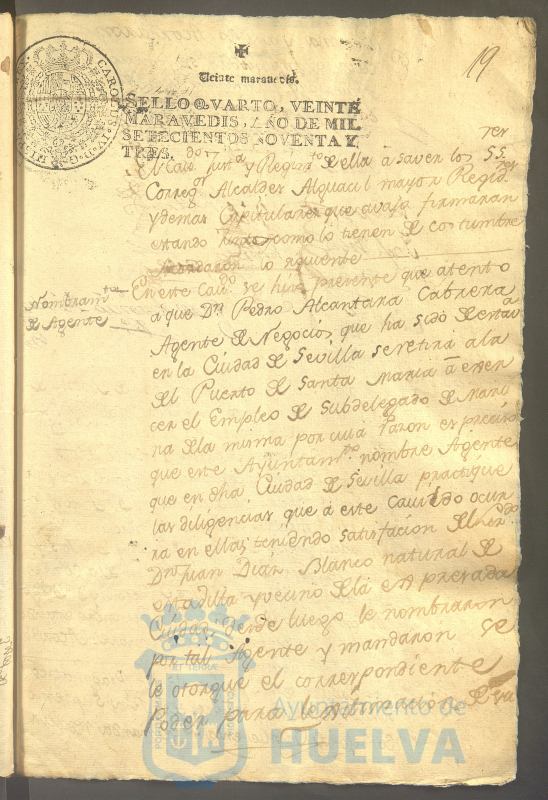 19
Veinte maravedis.
SELLO QVARTO, VEINTE
MARAVEDIS, AÑO DE MIL
SETECIENTOS NOVENTA Y
TRES.
El Cavdo Justa y Regimto de ella a saver los SSres
Corregor Alcaldes Alguacil mayor Regidres
y demas Capitulares que avajo firmaran
estando juntos como lo tienen de costumbre
acordaron lo siguiente
Nombramto
de Agente
En este Cavdo se hizo presente que atento
a que Dn Pedro Alcantara Cabrera
Agente de Negocios que ha sido de esta va
en la Ciudad de Sevilla se retira a la
del Puerto de Santa Maria a exer
cer el Empleo de Subdelegado de Mari
na de la misma por cuia razon es preciso
que este Ayuntamto nombre Agente
que en dha Ciudad de Sevilla practique
las diligencias que a este Cavildo ocur
ra en ellas, teniendo satisfacion de
Dn Juan Diaz Blanco natural de
esta villa y vecino de la expresada
Ciudad, desde luego le nombraron
por tal Agente y mandaron se
le otorgue el correspondiente
Poder para lexitimacion de su
Ayuntamiento de
HUELVA